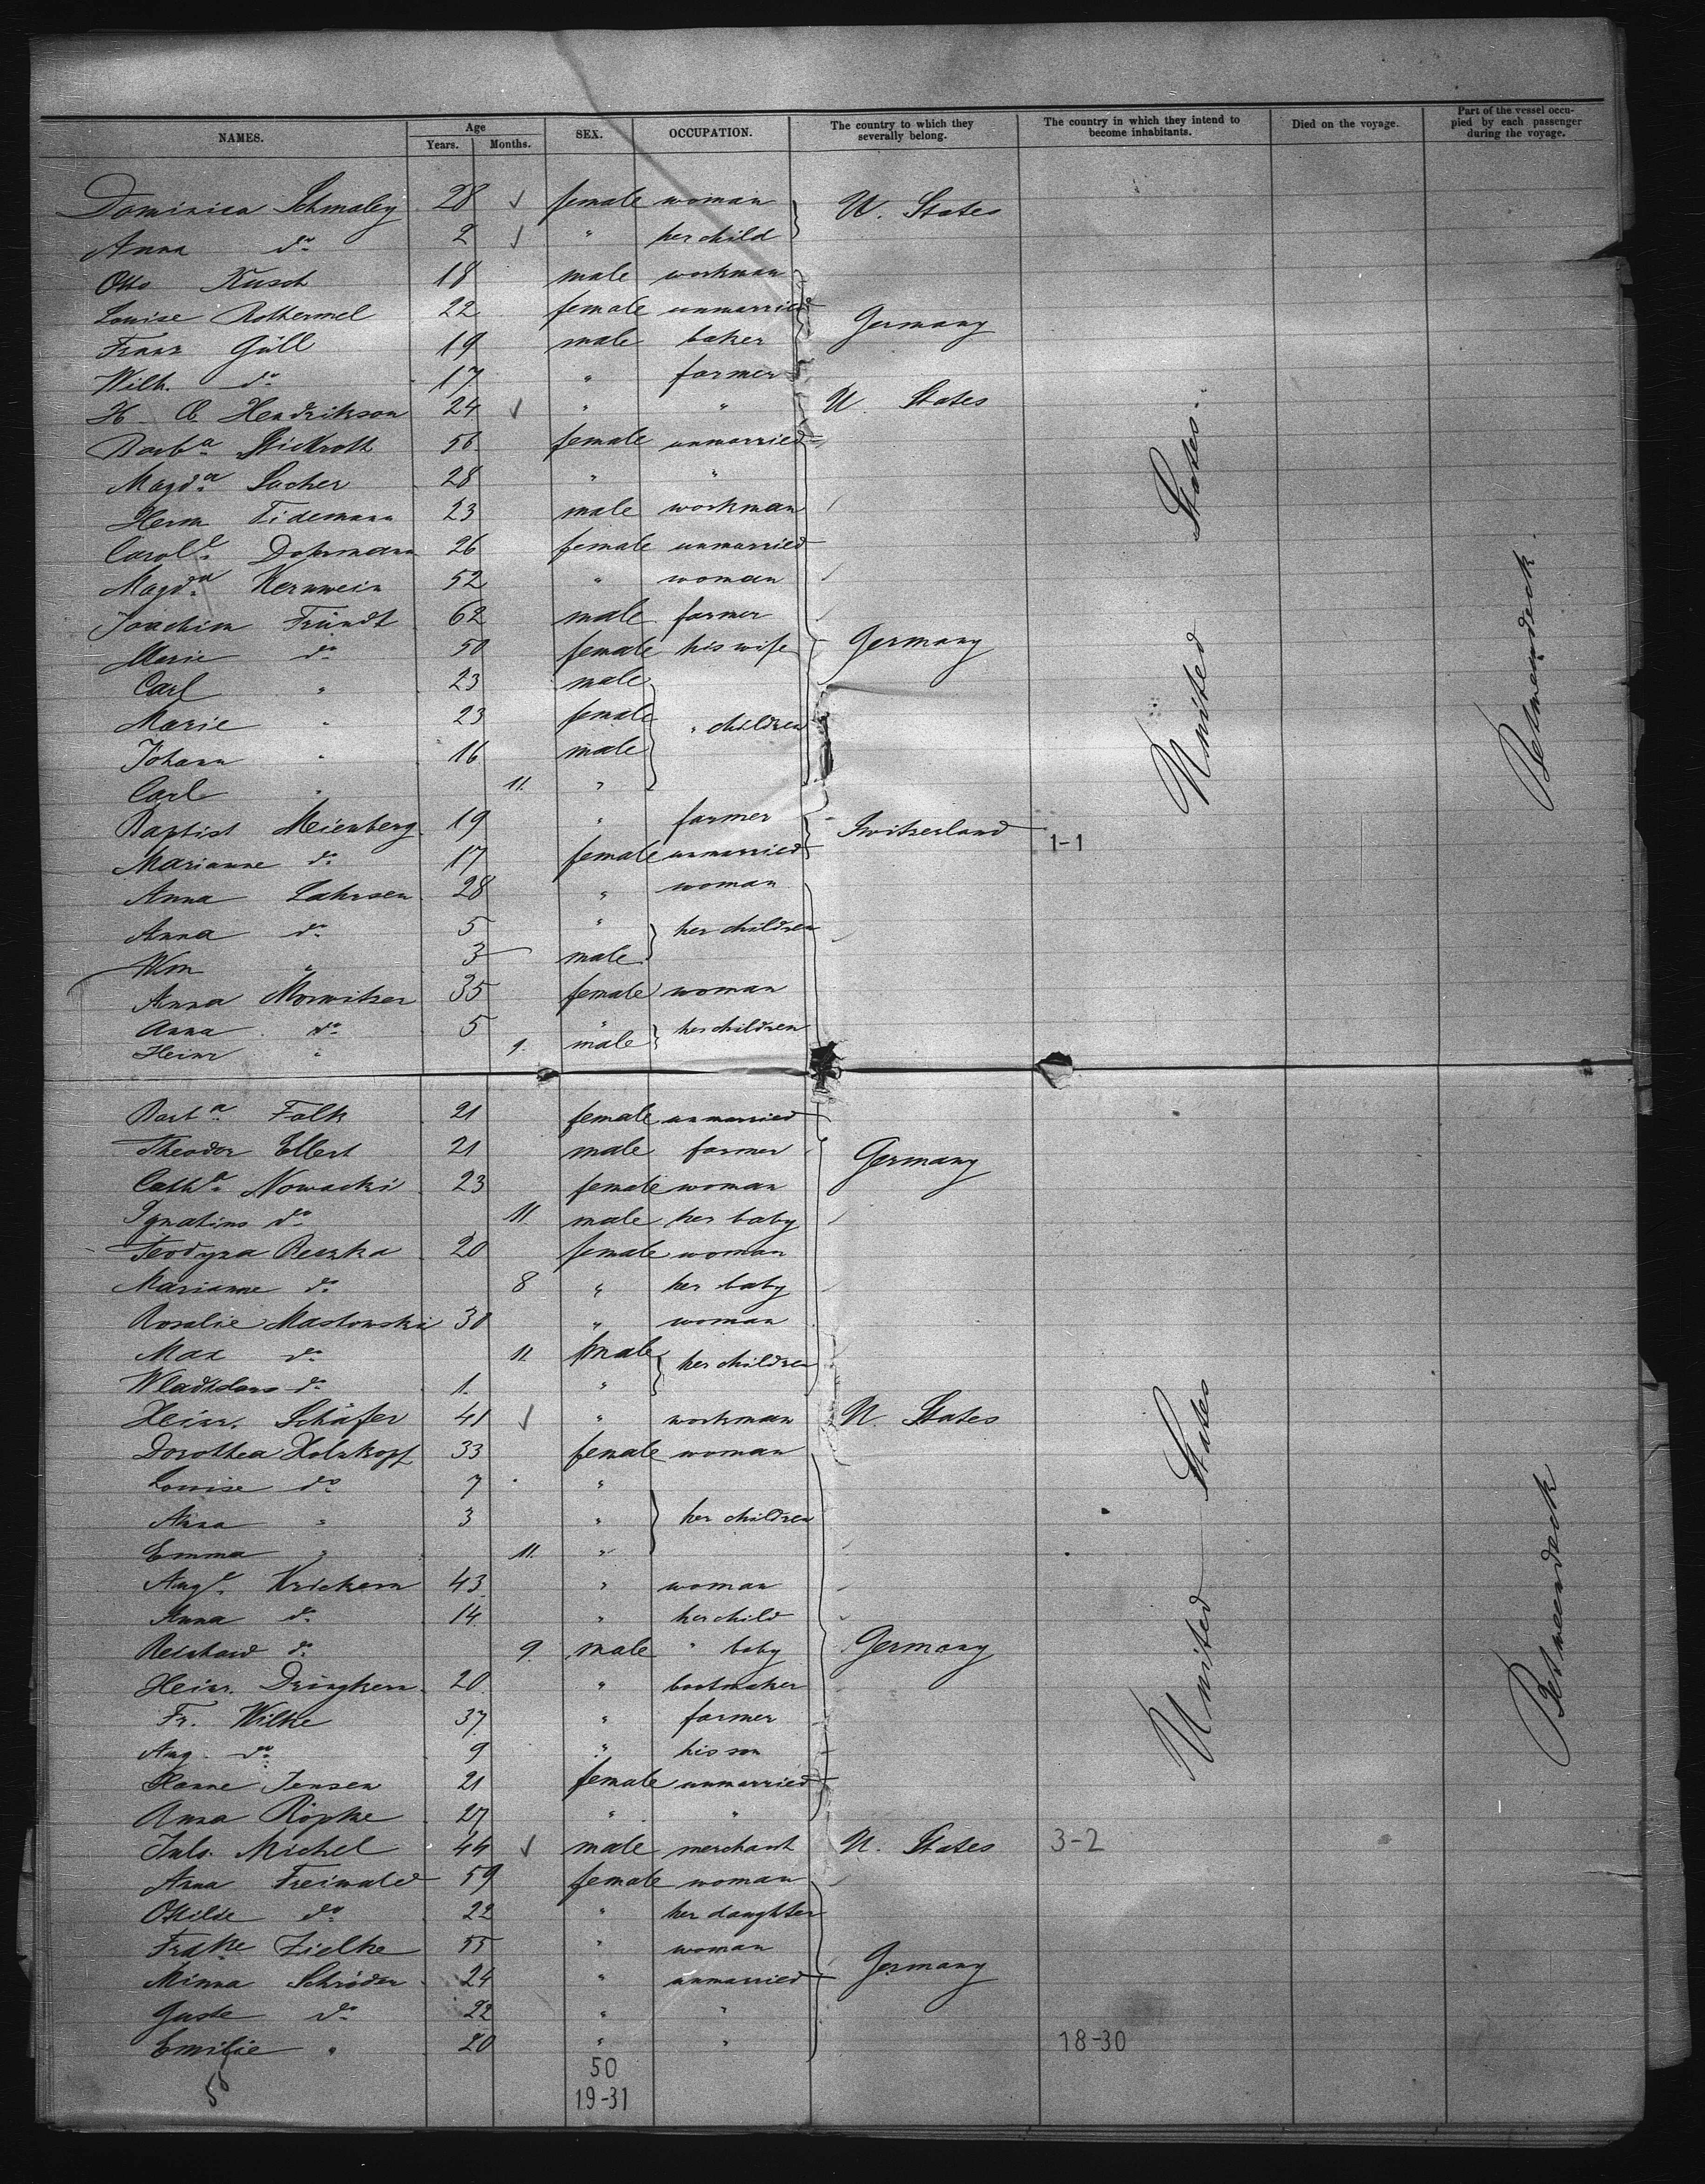 NAMES. Age Years. Months. SEX. OCCUPATION. The country to which they severally belong. The country in which they intend to become inhabitants. Died on the voyage. Part of the vessel occupied by each passenger during the voyage.
Dominica Schmaley 28 female woman U. States
Anna do 2 " her child
Otto Kusch 18 male workman
Louise Rothermel 22 female unmarried Germany
Franz Güll 19 male baker
Wilh. do 17 " farmer
H. C. Hendrikson 24 " " U. States
Barba Stickroth 56 female unmarried
Magda Sacher 28 " "
Herm Tidemann 23 male workman
Carole Dohrmann 26 female unmarried
Magda Kernwein 52 " woman
Joachim Fründt 62 male farmer
Marie do 50 female his wife Germany
Carl " 23 male
Marie " 23 female " children
Johann " 16 male
Carl " 11 "
Baptist Meienberg 19 " farmer Switzerland
Marianne do 17 female unmarried 1-1
Anna Lahrsen 28 " woman
Anna do 5 " her children
Wm " 3 male
Anna Morwitzer 35 female woman
Anna do 5 " her children
Heinr " 9 male
United States.
Betweendeck.
Barba Falk 21 female unmarried
Theodor Ellert 21 male farmer Germany
Catha Nowacki 23 female woman
Ignatius do 11 male her baby
Teodyza Reszka 20 female woman
Marianne do 8 " her baby
Rosalie Maslowski 30 " woman
Max do 11 male her children
Wladislaus do 1 "
Heinr. Schäfer 41 " workman U. States
Dorothea Holzkopf 33 female woman
Louise do 7 "
Anna " 3 " her children
Emma " 11 "
Auge Krickern 43 " woman
Anna do 14 " her child
Reichard do 9 male " baby Germany
Heinr. Dringkern 20 " bootmaker
Fr. Wilke 37 " farmer
Aug. do 9 " his son
Hanne Jensen 21 female unmarried
Anna Röpke 27 " "
Juls. Michel 44 male merchant U. States 3-2
Anna Freiwald 59 female woman
Ottilde do 22 " her daughter
Fradke Zielke 55 " woman
Minna Schröder 24 " unmarried Germany
Guste do 22 " "
Emilie " 20 " " 18-30
United States
Betweendeck
50
50
19-31